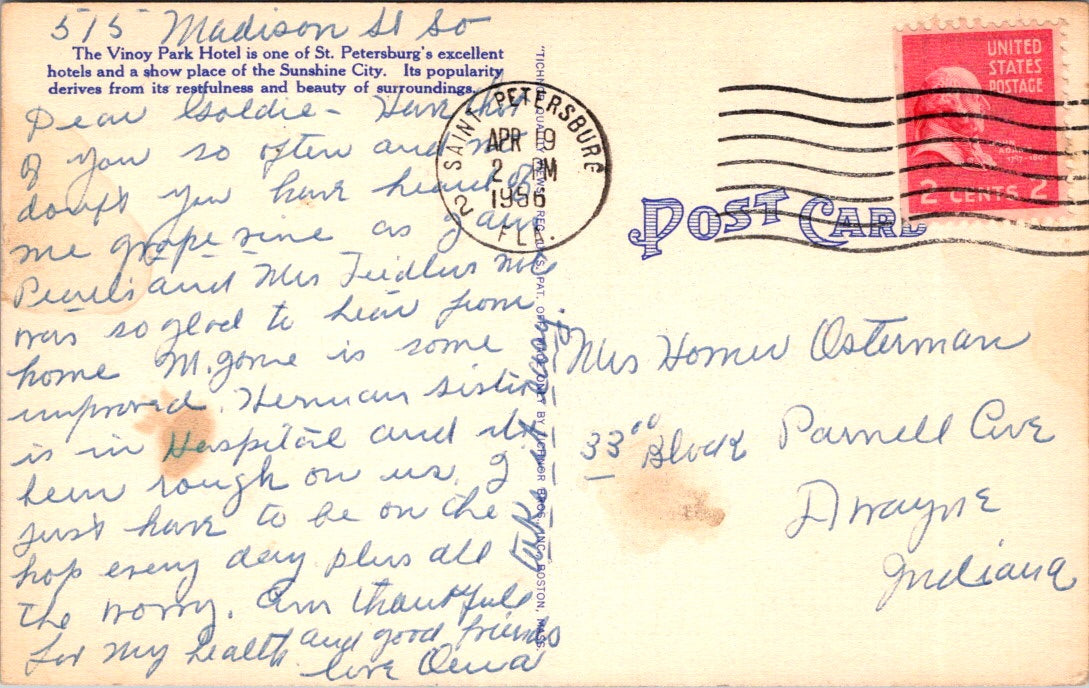 515 Madison St So
The Vinoy Park Hotel is one of St. Petersburg's excellent
hotels and a show place of the Sunshine City. Its popularity
derives from its restfulness and beauty of surroundings.
Dear Goldie - Have
of you so often and
don't you have heard of
me grape vine as I am
and Mrs
was so glad to hear from
home M. is some
improved. Herman sister
is in Hospital and it
been rough on us. I
just have to be on the
hop every day plus all
the worry. Am thankful
for my health and good friends
love
take it easy.
"TICHNOR QUALITY VIEWS," REG. U. S. PAT. OFF. MADE ONLY BY TICHNOR BROS., INC., BOSTON, MASS.
SAINT PETERSBURG
APR 19
2 PM
1956
FLA.
2
UNITED
STATES
POSTAGE
2 CENTS 2
POST CARD
Mrs Homer Osterman
3300 Block Parnell Ave
Ft Wayne
Indiana